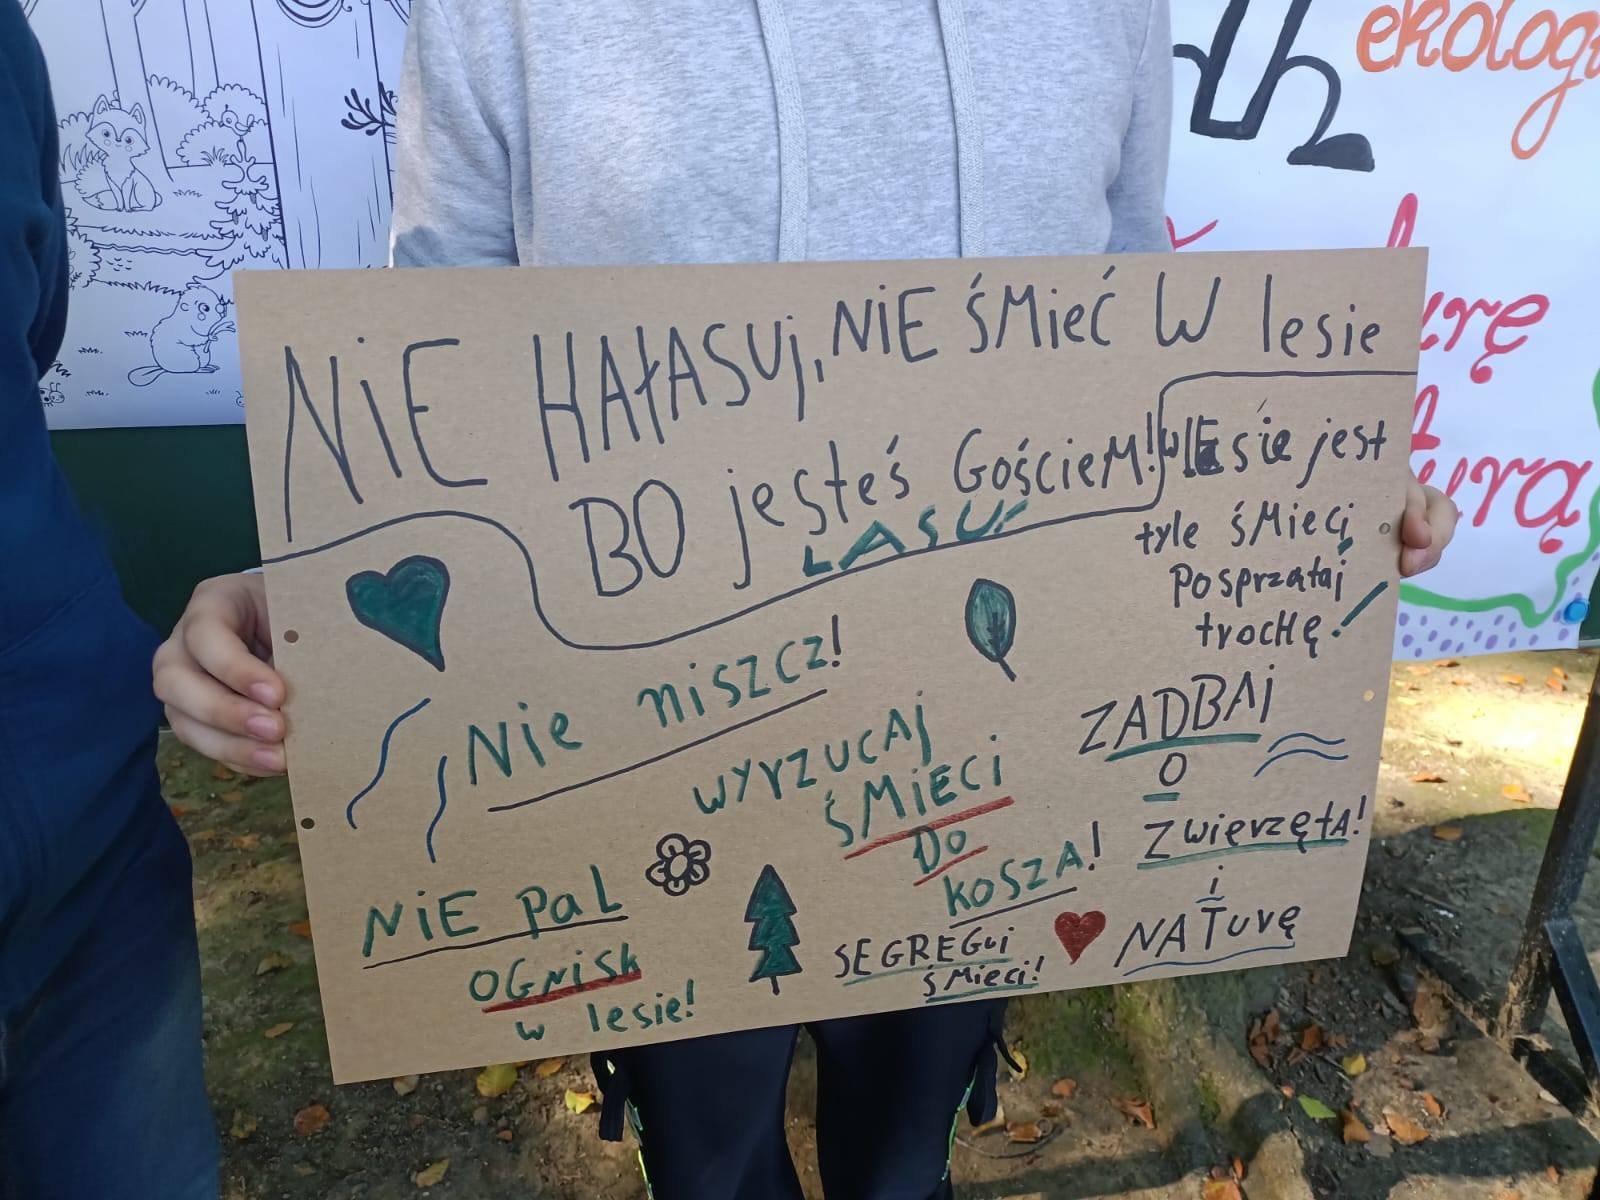 NiE HAŁASUj, NiE śMieć W lesie
BO jesteś GościeM!
LASU!
W LEsie jest
tyle śMieci,
Posprzątaj
trocHę!
Nie niszcz!
WYrZUCAj
śMiECi
DO
KOSZA!
ZADBAj
O
ZwierzętA!
i
NATurę
NiE PaL
OGNisk
w lesie!
SEGREGuj
śMieci!
ekolog
urę
urą